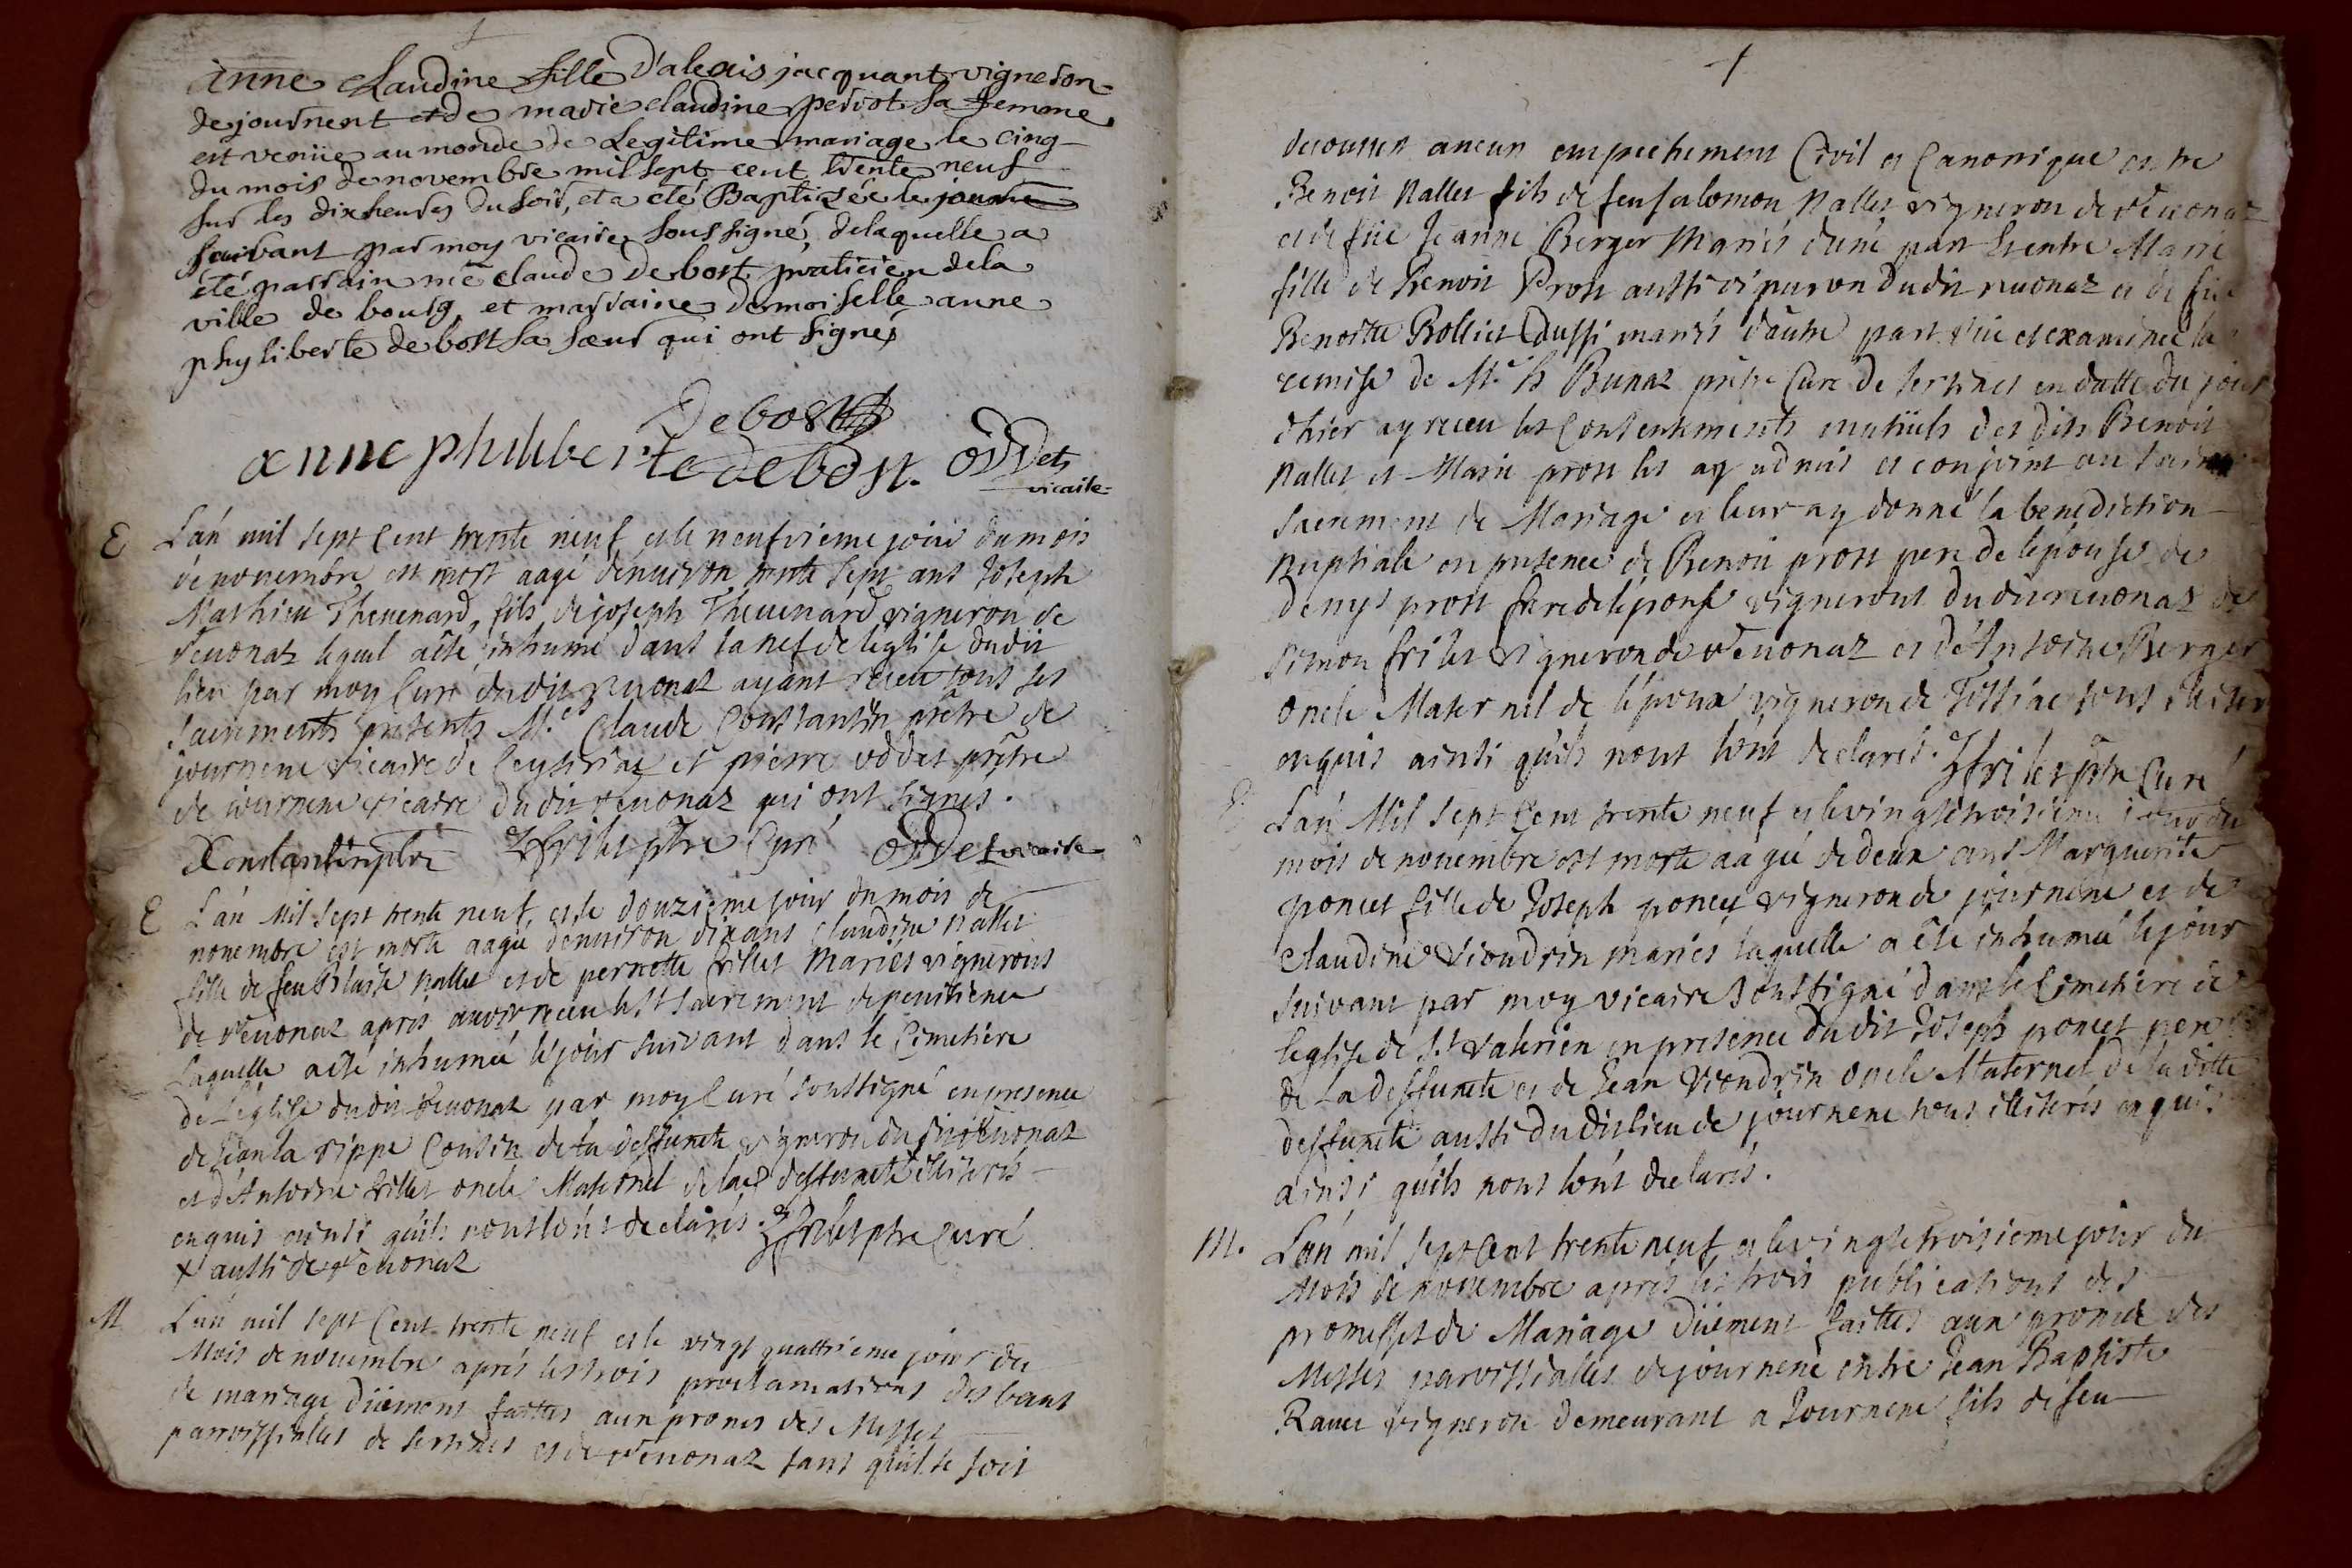 Anne Claudine fille d'alexis jacquant vigneron
de journent et de marie claudine perrot sa femme
est venüe au monde de Legitime mariage le cinq
du mois de novembre mil sept cent trente neuf
sur les dix heures du soir, et a eté Baptizée le jour
suivant par moy vicaire soussigné, de laquelle a
été parrain me claude debost praticien de la
ville de bourg, et marraine demoiselle anne
phyliberte debost sa sœur qui ont signés
Debost
anne philiberte debost. oddet
vicaire
E L'an mil sept Cent trente neuf et le neufvieme jour du mois
de novembre est mort aagé denviron trente sept ans Joseph
Mathieu Thevenard, fils de joseph Thevenard vigneron de
revonaz lequel a été inhumé dans la nef de leglise dudit
lieu par moy Curé dudit revonaz ayant receu tous ses
sacrements presents Mre Claude Constantin prêtre de
journene vicaire de Ceyseriaz et pierre oddet prêtre
de journene vicaire dudit revonaz qui ont signés.
Constantin ptre frilet ptre Curé oddet vicaire
E L'an Mil sept trente neuf, et le douzieme jour du mois de
novembre est morte aagée denviron dix ans claudine nallet
fille de feu Blaise nallet et de pernette frillet Mariés vignerons
de revonaz apres avoir receu le St sacrement de penitence
Laquelle a été inhumée le jour suivant dans le Cimetiere
de L'église dudit revonaz par moy Curé soussigné en presence
de jean la rippe Cousin de la deffuncte vigneron dudit revonaz
et d'Antoine frillet oncle Maternel de lad deffuncte illiterés
enquis ainsi quils nous lont declarés. frilet ptre Curé
x aussi de revonaz
M L'an mil sept Cent trente neuf et le vingt quattrieme jour du
Mois de novembre aprés les trois proclamations des bans
de mariage düement faittes aux prones des Messes
parroissialles de sersenes et de revonaz sans quil se soit
decouvert aucun empechement Civil et Canonique entre
Benoit Nallet fils de feu salomon Nallet vigneron de revonaz
et de füe Jeanne Berger Mariés d'une part Et entre Marie
fille de Benoit Prost aussi vigneron dudit revonaz et de füe
Benoitte Bolliet aussi mariés d'autre part vüe et examinée la
remise de Mre Bunaz prêtre Curé de sersenes en datte du jour
d'hier ay receu les Consentements mutüels des dits Benoit
Nallet et Marie prost les ay admis et conjoint au saint
sacrement de Mariage et leur ay donné la benediction
nuptiale en presence de Benoit prost pere de lepouse de
denys prost frere de lepouse vignerons dudit revonaz de
simon frilet vigneron de revonaz et d'Antoine Berger
oncle Maternel de l'époux vigneron de Tossiac tous illiterés
enquis ainsi quils nous lont declarés. frilet ptre Curé
E L'an Mil sept Cent trente neuf et le vingt troisieme jour du
mois de novembre est morte aagée de deux ans Marguerite
poncet fille de Joseph poncet vigneron de journene et de
Claudine Viondrin mariés laquelle a été inhumée le jour
suivant par moy vicaire soussigné dans le Cimetiere de
leglise de St valerien en presence dudit Joseph poncet pere
de La deffuncte et de Jean Viondrin oncle Maternel de laditte
deffuncte aussi dudit lieu de journene tous illiterés enquis
ainsi quils nous lont declarés.
M. L'an mil sept Cent trente neuf et le vingt troisieme jour du
mois de novembre apres les trois publications des
promesses de Mariage düement faittes aux prones des
Messes parroissialles de journene entre Jean Baptiste
Ravet vigneron demeurant a Journene fils de feu